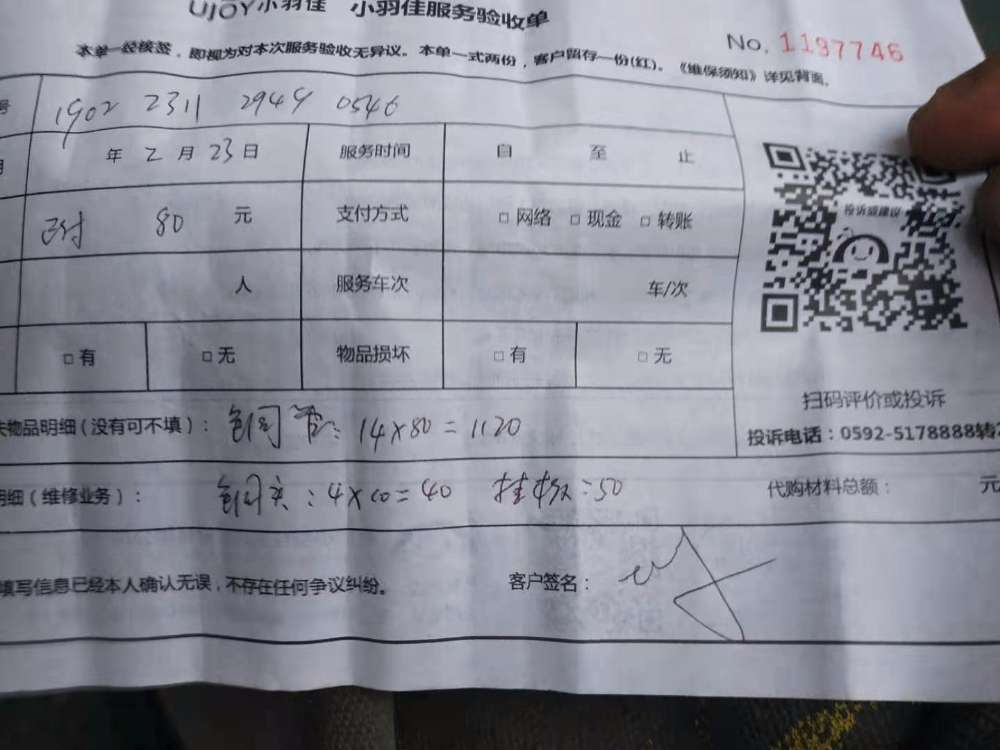 UJOY小羽佳 小羽佳服务验收单
No. 1197746
本单一经核签，即视为对本次服务验收无异议。本单一式两份，客户留存一份(红)。《维保须知》详见背面。
号 1902 2311 2949 0546
年 2 月 23 日 服务时间 自 至 止
已付 80 元 支付方式 □ 网络 □ 现金 □ 转账
人 服务车次 车/次
□ 有 □ 无 物品损坏 □ 有 □ 无
投诉或建议
扫码评价或投诉
投诉电话：0592-5178888转2
物品明细(没有可不填)： 铜管：14×80=1120
明细(维修业务)： 铜 ：4×10=40 挂板：50 代购材料总额： 元
填写信息已经本人确认无误，不存在任何争议纠纷。 客户签名：